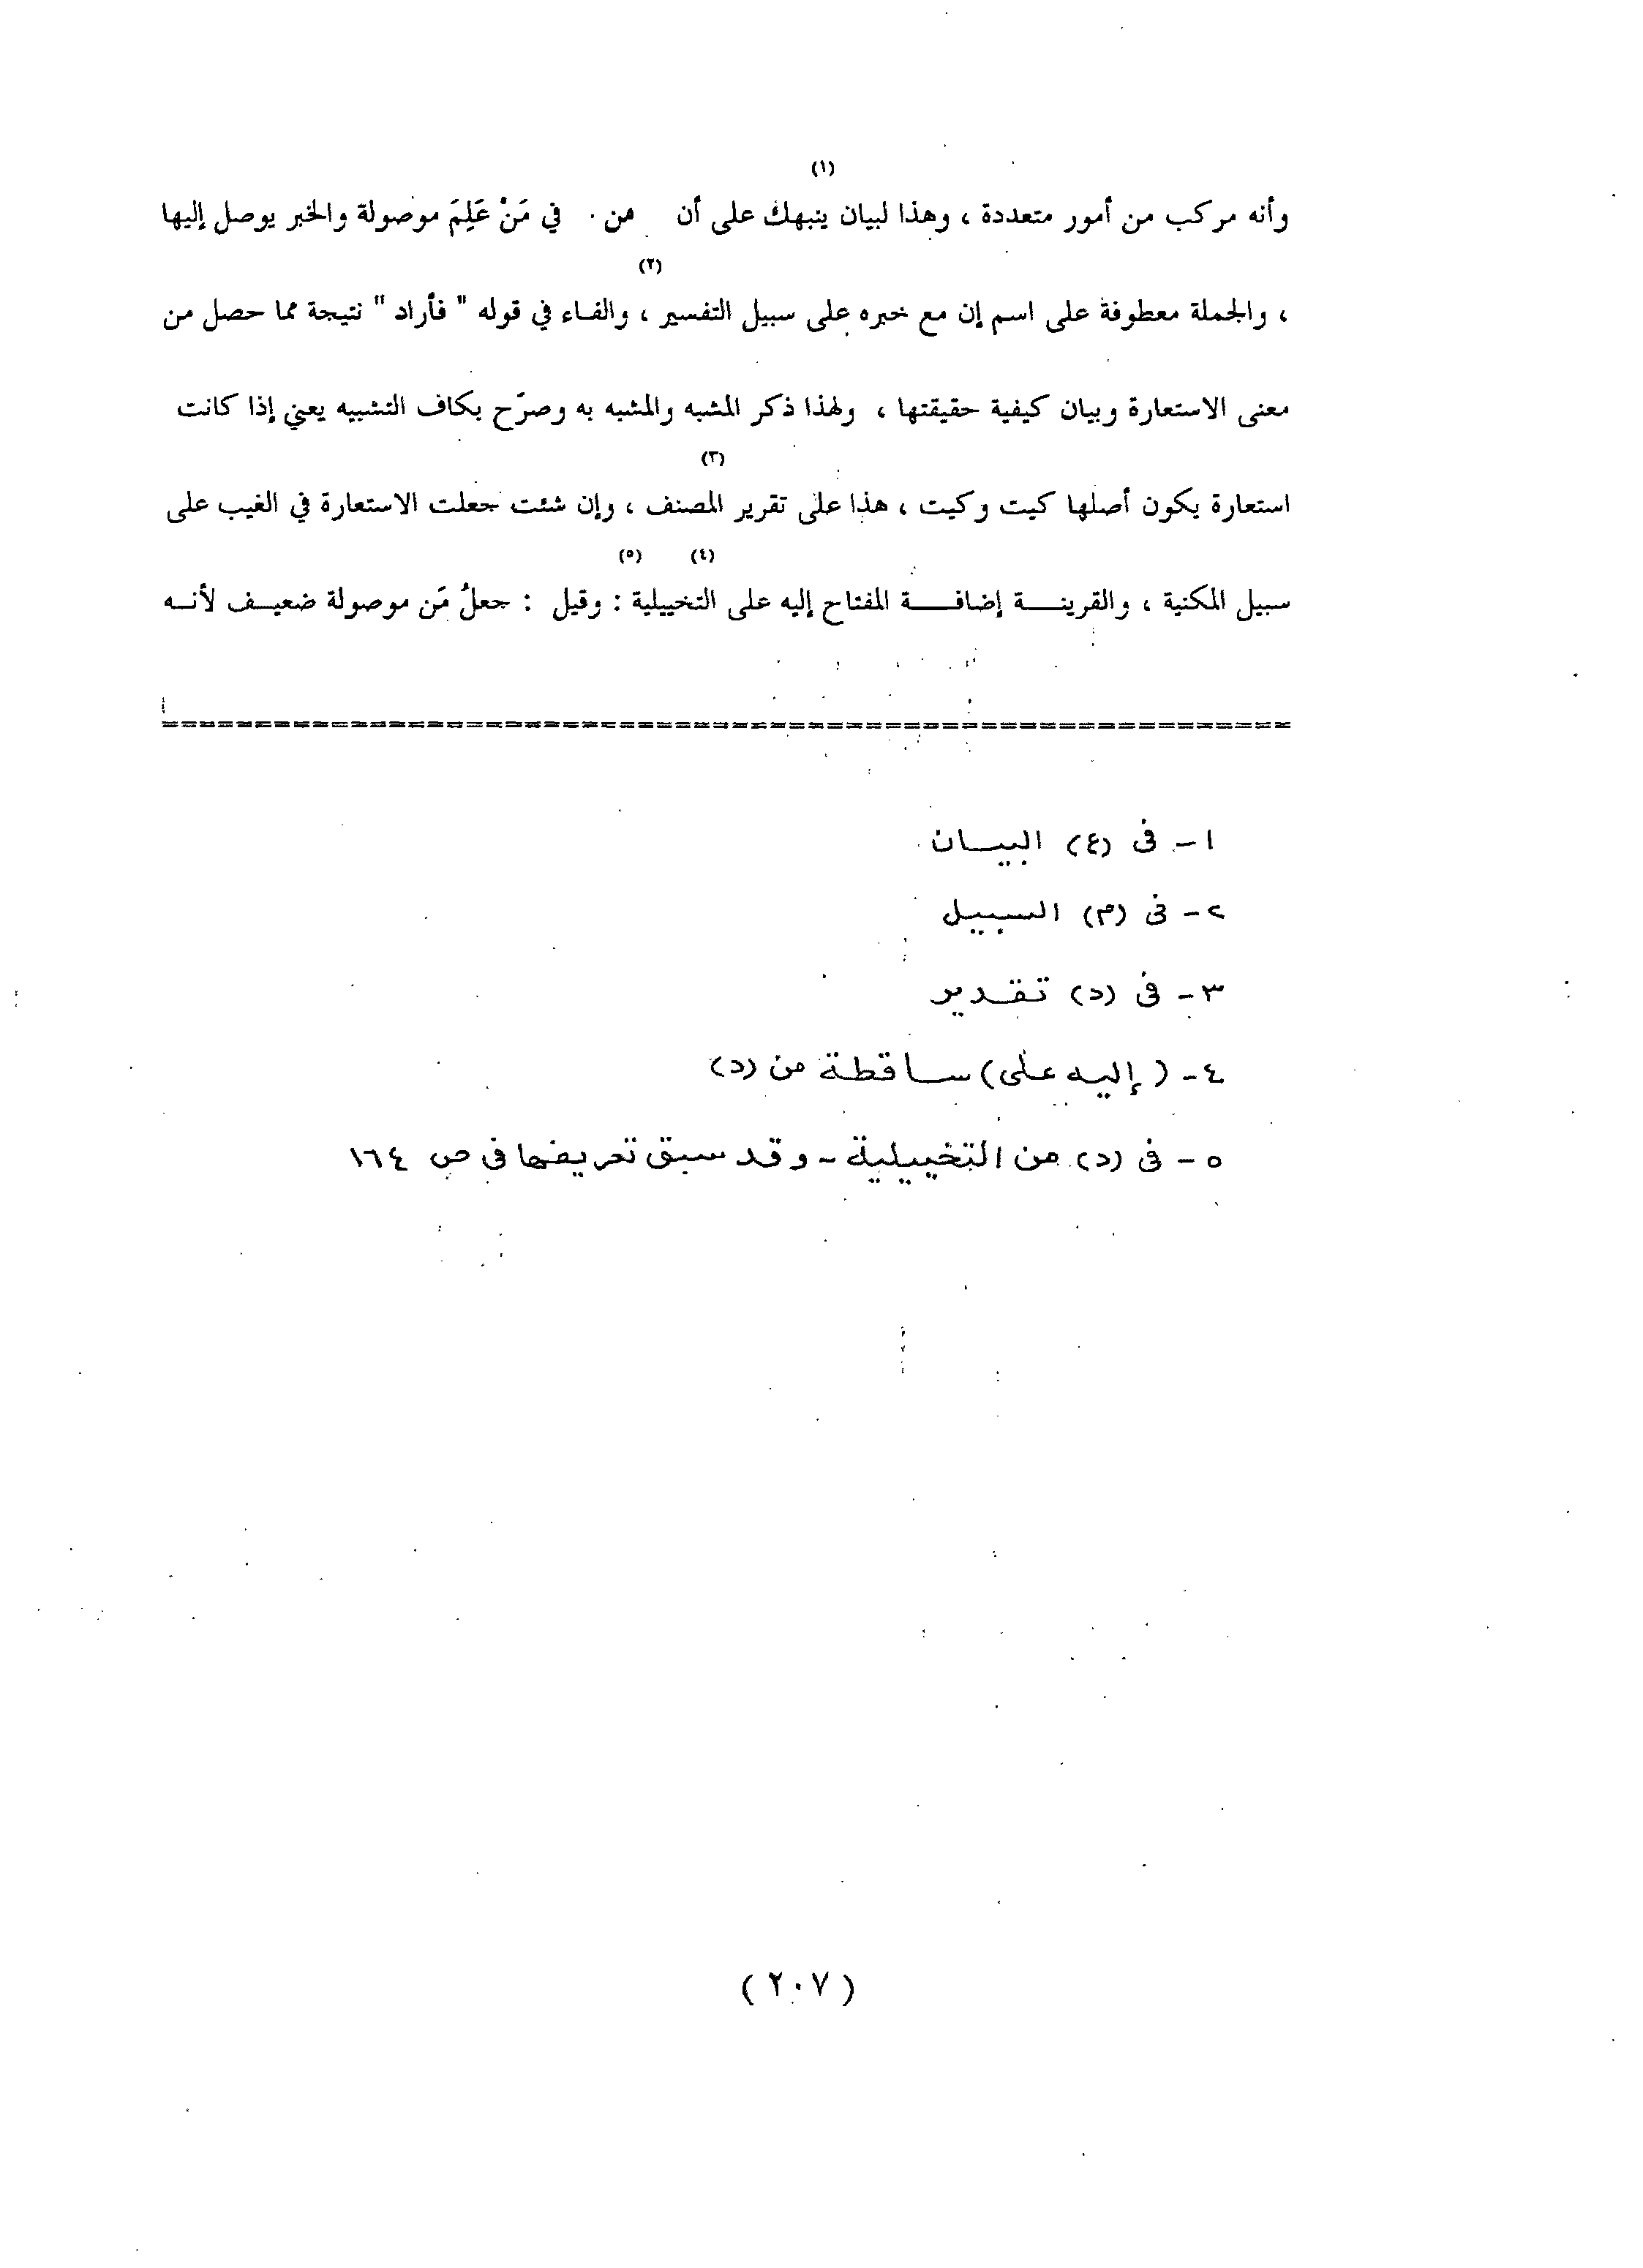 (١)
وأنه مركب من أمور متعددة ، وهذا لبيان ينبهك على أن من . في مَنْ عَلِمَ موصولة والخبر يوصل إليها
(٢)
، والجملة معطوفة على اسم إن مع خبره على سبيل التفسير ، والفاء في قوله " فأراد " نتيجة مما حصل من
معنى الاستعارة وبيان كيفية حقيقتها ، ولهذا ذكر المشبه والمشبه به وصرّح بكاف التشبيه يعني إذا كانت
(٣)
استعارة يكون أصلها كيت وكيت ، هذا على تقرير المصنف ، وإن شئت جعلت الاستعارة في الغيب على
(٤) (٥)
سبيل المكنية ، والقرينــــة إضافــــة المفتاح إليه على التخييلية : وقيل : جعلُ مَن موصولة ضعيــف لأنــه
١ - فى (ع) البيــان
٢ - فى (م) السبيل
٣ - فى (د) تقدير
٤ - (إليه على) ساقطة من (د)
٥ - فى (د) من التخييلية - وقد سبق تعريفها فى ص ١٦٤
(٢٠٧)